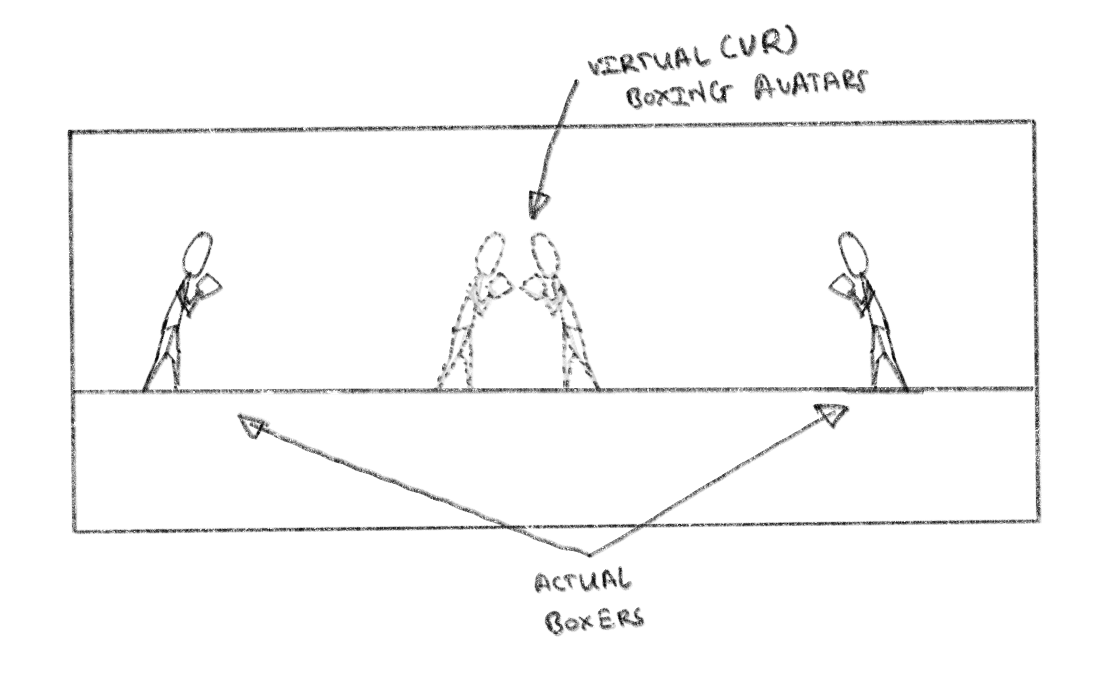 VIRTUAL (VR)
BOXING AVATARS
ACTUAL
BOXERS